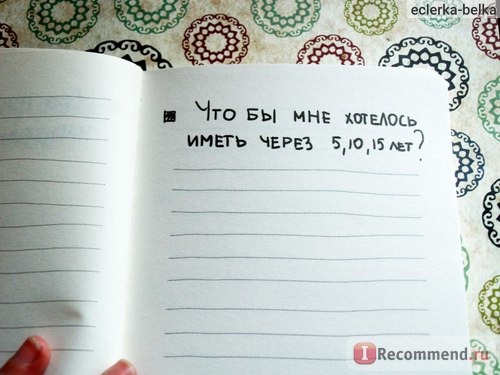 eclerka-belka
Что бы мне хотелось
иметь через 5,10,15 лет?
I Recommend.ru